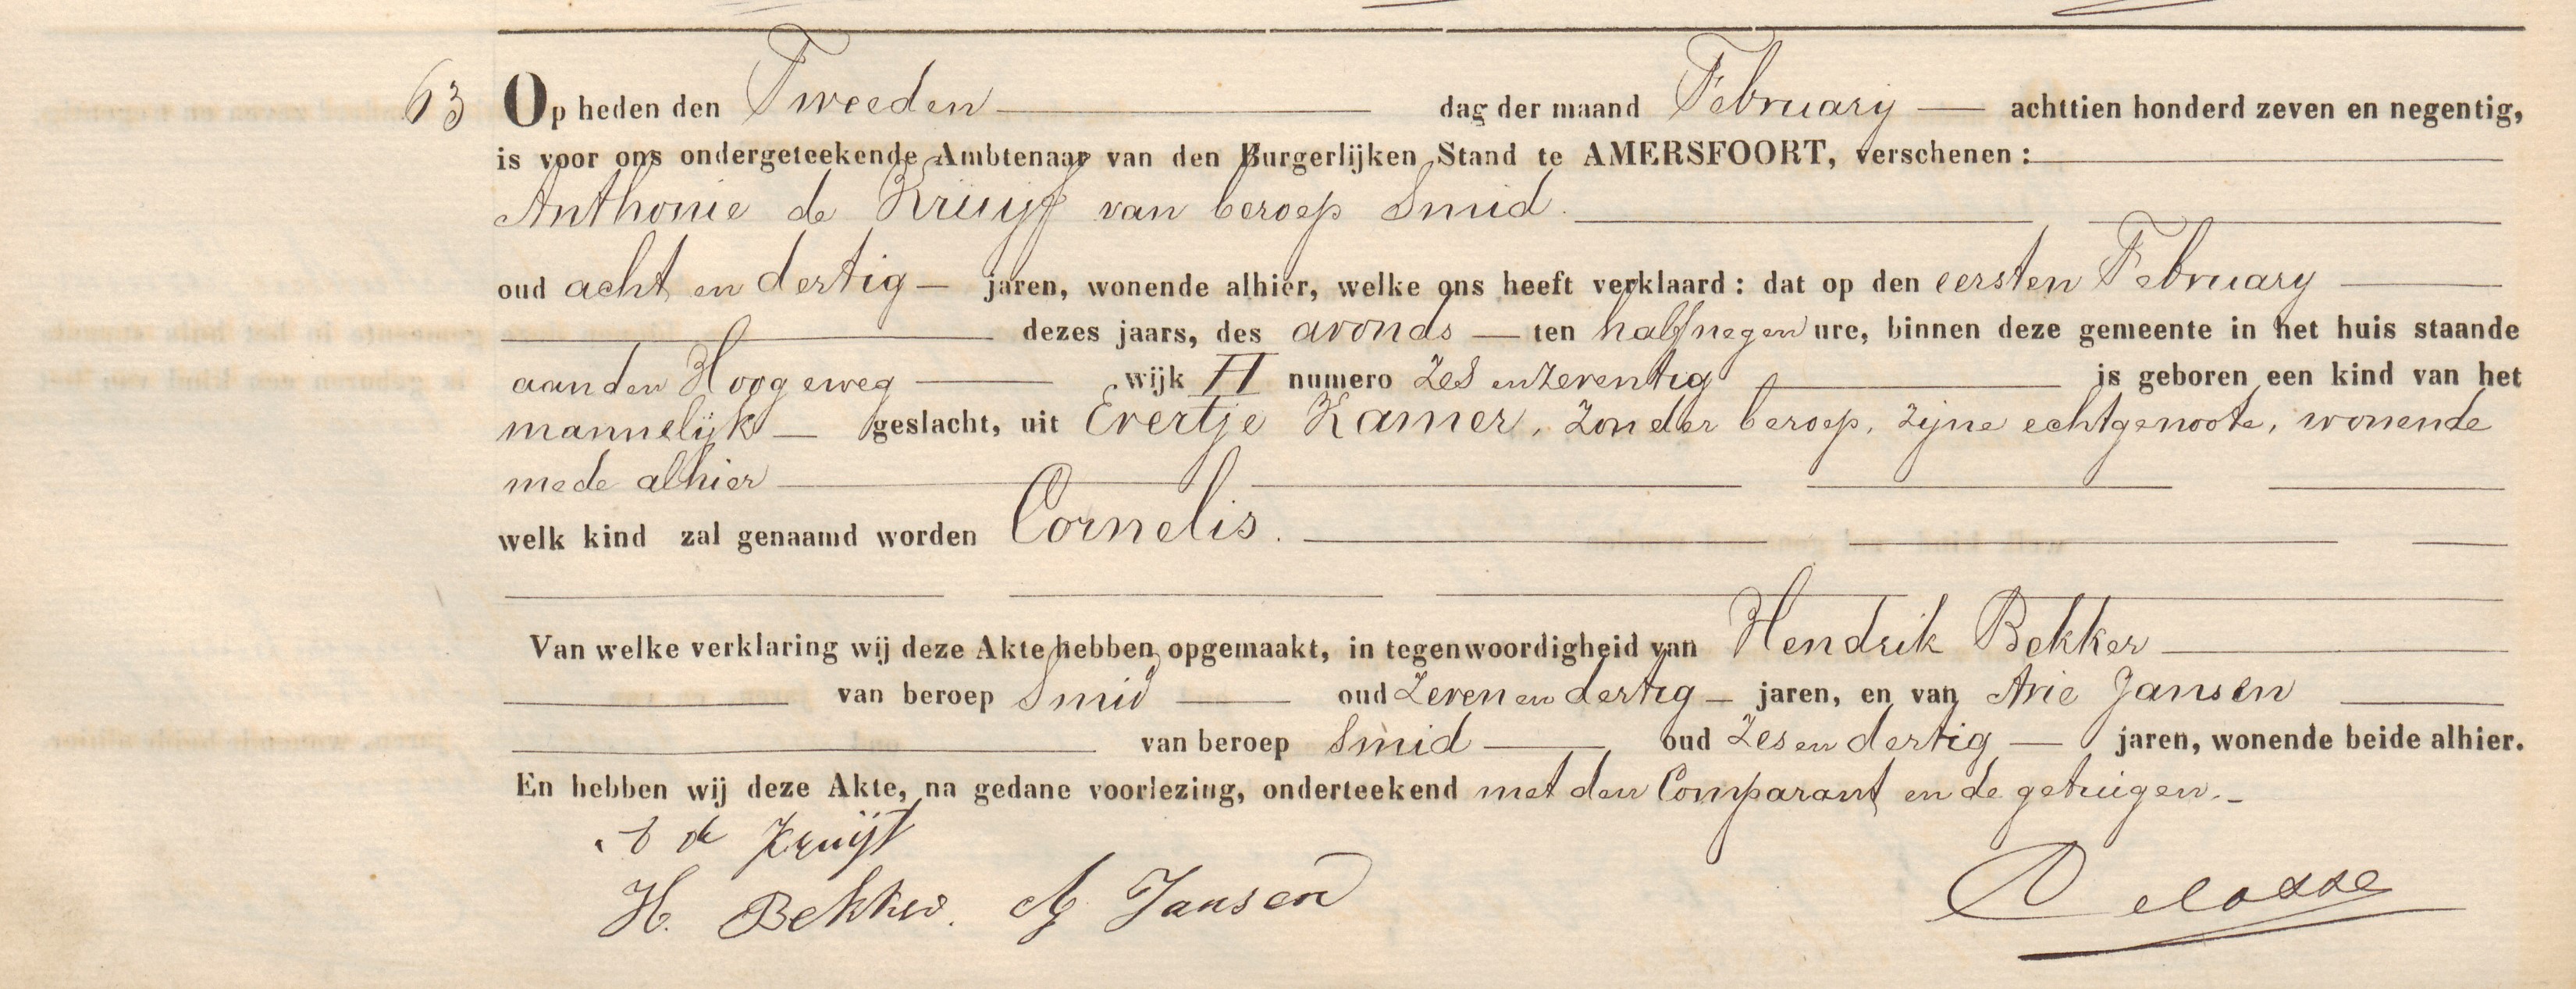 63 Op heden den Tweeden dag der maand February achttien honderd zeven en negentig,
is voor ons ondergeteekende Ambtenaar van den Burgerlijken Stand te AMERSFOORT, verschenen:
Anthonie de Kruijf van beroep Smid.
oud acht en dertig jaren, wonende alhier, welke ons heeft verklaard: dat op den eersten February
dezes jaars, des avonds ten half negen ure, binnen deze gemeente in het huis staande
aan den Hoogeweg wijk H numero zes en zeventig is geboren een kind van het
mannelijk geslacht, uit Evertje Kamer, zonder beroep, zijne echtgenoote, wonende
mede alhier
welk kind zal genaamd worden Cornelis.
Van welke verklaring wij deze Akte hebben opgemaakt, in tegenwoordigheid van Hendrik Bekker
van beroep Smid oud zeven en dertig jaren, en van Arie Jansen
van beroep Smid oud zes en dertig jaren, wonende beide alhier.
En hebben wij deze Akte, na gedane voorlezing, onderteekend met den Comparant en de getuigen.
de Kruijf
H. Bekker. A Jansen